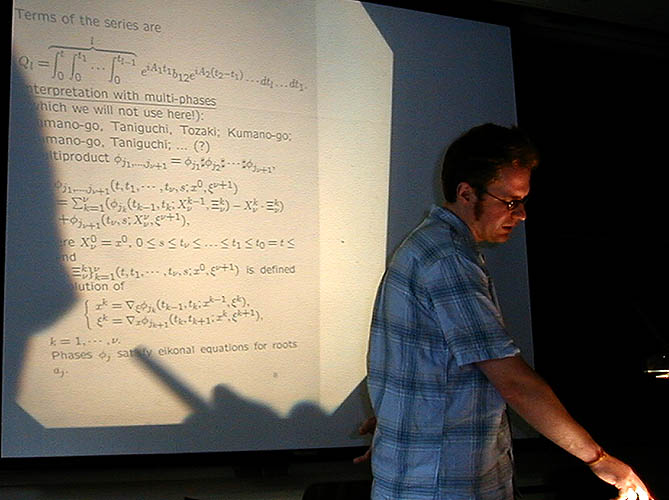 Terms of the series are
l
Q_l = ∫_0^t ∫_0^{t_1} ⋯ ∫_0^{t_{l-1}} e^{iA_1t_1} b_{12} e^{iA_2(t_2-t_1)} … dt_l … dt_1.
nterpretation with multi-phases
which we will not use here!):
umano-go, Taniguchi, Tozaki; Kumano-go;
mano-go, Taniguchi; ... (?)
ltiproduct ϕ_{j_1,…,j_{ν+1}} = ϕ_{j_1}♯ϕ_{j_2}♯⋯♯ϕ_{j_{ν+1}},
ϕ_{j_1,…,j_{ν+1}}(t, t_1, ⋯, t_ν, s; x^0, ξ^{ν+1})
= Σ_{k=1}^ν (ϕ_{j_k}(t_{k-1}, t_k; X_ν^{k-1}, Ξ_ν^k) − X_ν^k · Ξ_ν^k)
+ϕ_{j_{ν+1}}(t_ν, s; X_ν^ν, ξ^{ν+1}),
ere X_ν^0 = x^0, 0 ≤ s ≤ t_ν ≤ … ≤ t_1 ≤ t_0 = t ≤
nd
Ξ_ν^k}_{k=1}^ν(t, t_1, ⋯, t_ν, s; x^0, ξ^{ν+1}) is defined
olution of
{ x^k = ∇_ξϕ_{j_k}(t_{k-1}, t_k; x^{k-1}, ξ^k),
ξ^k = ∇_xϕ_{j_{k+1}}(t_k, t_{k+1}; x^k, ξ^{k+1}),
k = 1, ⋯, ν.
Phases ϕ_j satisfy eikonal equations for roots
a_j.
8